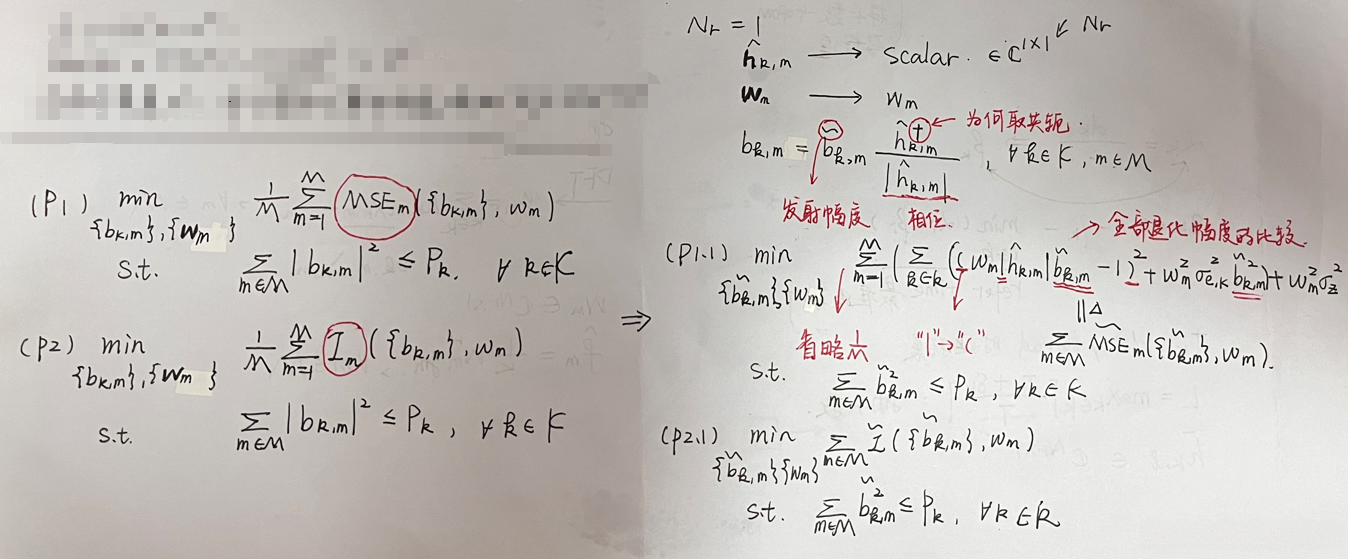 (P1) min 1/M ∑_{m=1}^{M} MSE_m({b_{k,m}}, w_m)
{b_{k,m}},{w_m}
s.t. ∑_{m∈M} |b_{k,m}|² ≤ P_k. ∀ k∈K
(P2) min 1/M ∑_{m=1}^{M} I_m({b_{k,m}}, w_m)
{b_{k,m}},{w_m}
s.t. ∑_{m∈M} |b_{k,m}|² ≤ P_k, ∀ k∈K
⇒
N_r = 1
ĥ_{k,m} → scalar. ∈ ℂ^{1×1} ↙ N_r
w_m → w_m
b_{k,m} = b̃_{k,m} ĥ_{k,m}^† / |ĥ_{k,m}|, ∀ k∈K, m∈M
← 为何取共轭.
发射幅度 相位.
→ 全部退化幅度的比较.
(P1.1) min ∑_{m=1}^{M} (∑_{k∈K} ((w_m|ĥ_{k,m}|b̃_{k,m} -1)² + w_m² σ_{e,k}² b̃_{k,m}²) + w_m² σ_z²
{b̃_{k,m}}{w_m}
省略 1/M "|"→"("
||△
∑_{m∈M} M̃SE_m({b̃_{k,m}}, w_m).
s.t. ∑_{m∈M} b̃_{k,m}² ≤ P_k, ∀k∈K
(P2.1) min ∑_{m∈M} Ĩ({b̃_{k,m}}, w_m)
{b̃_{k,m}}{w_m}
s.t. ∑_{m∈M} b̃_{k,m}² ≤ P_k, ∀k∈K